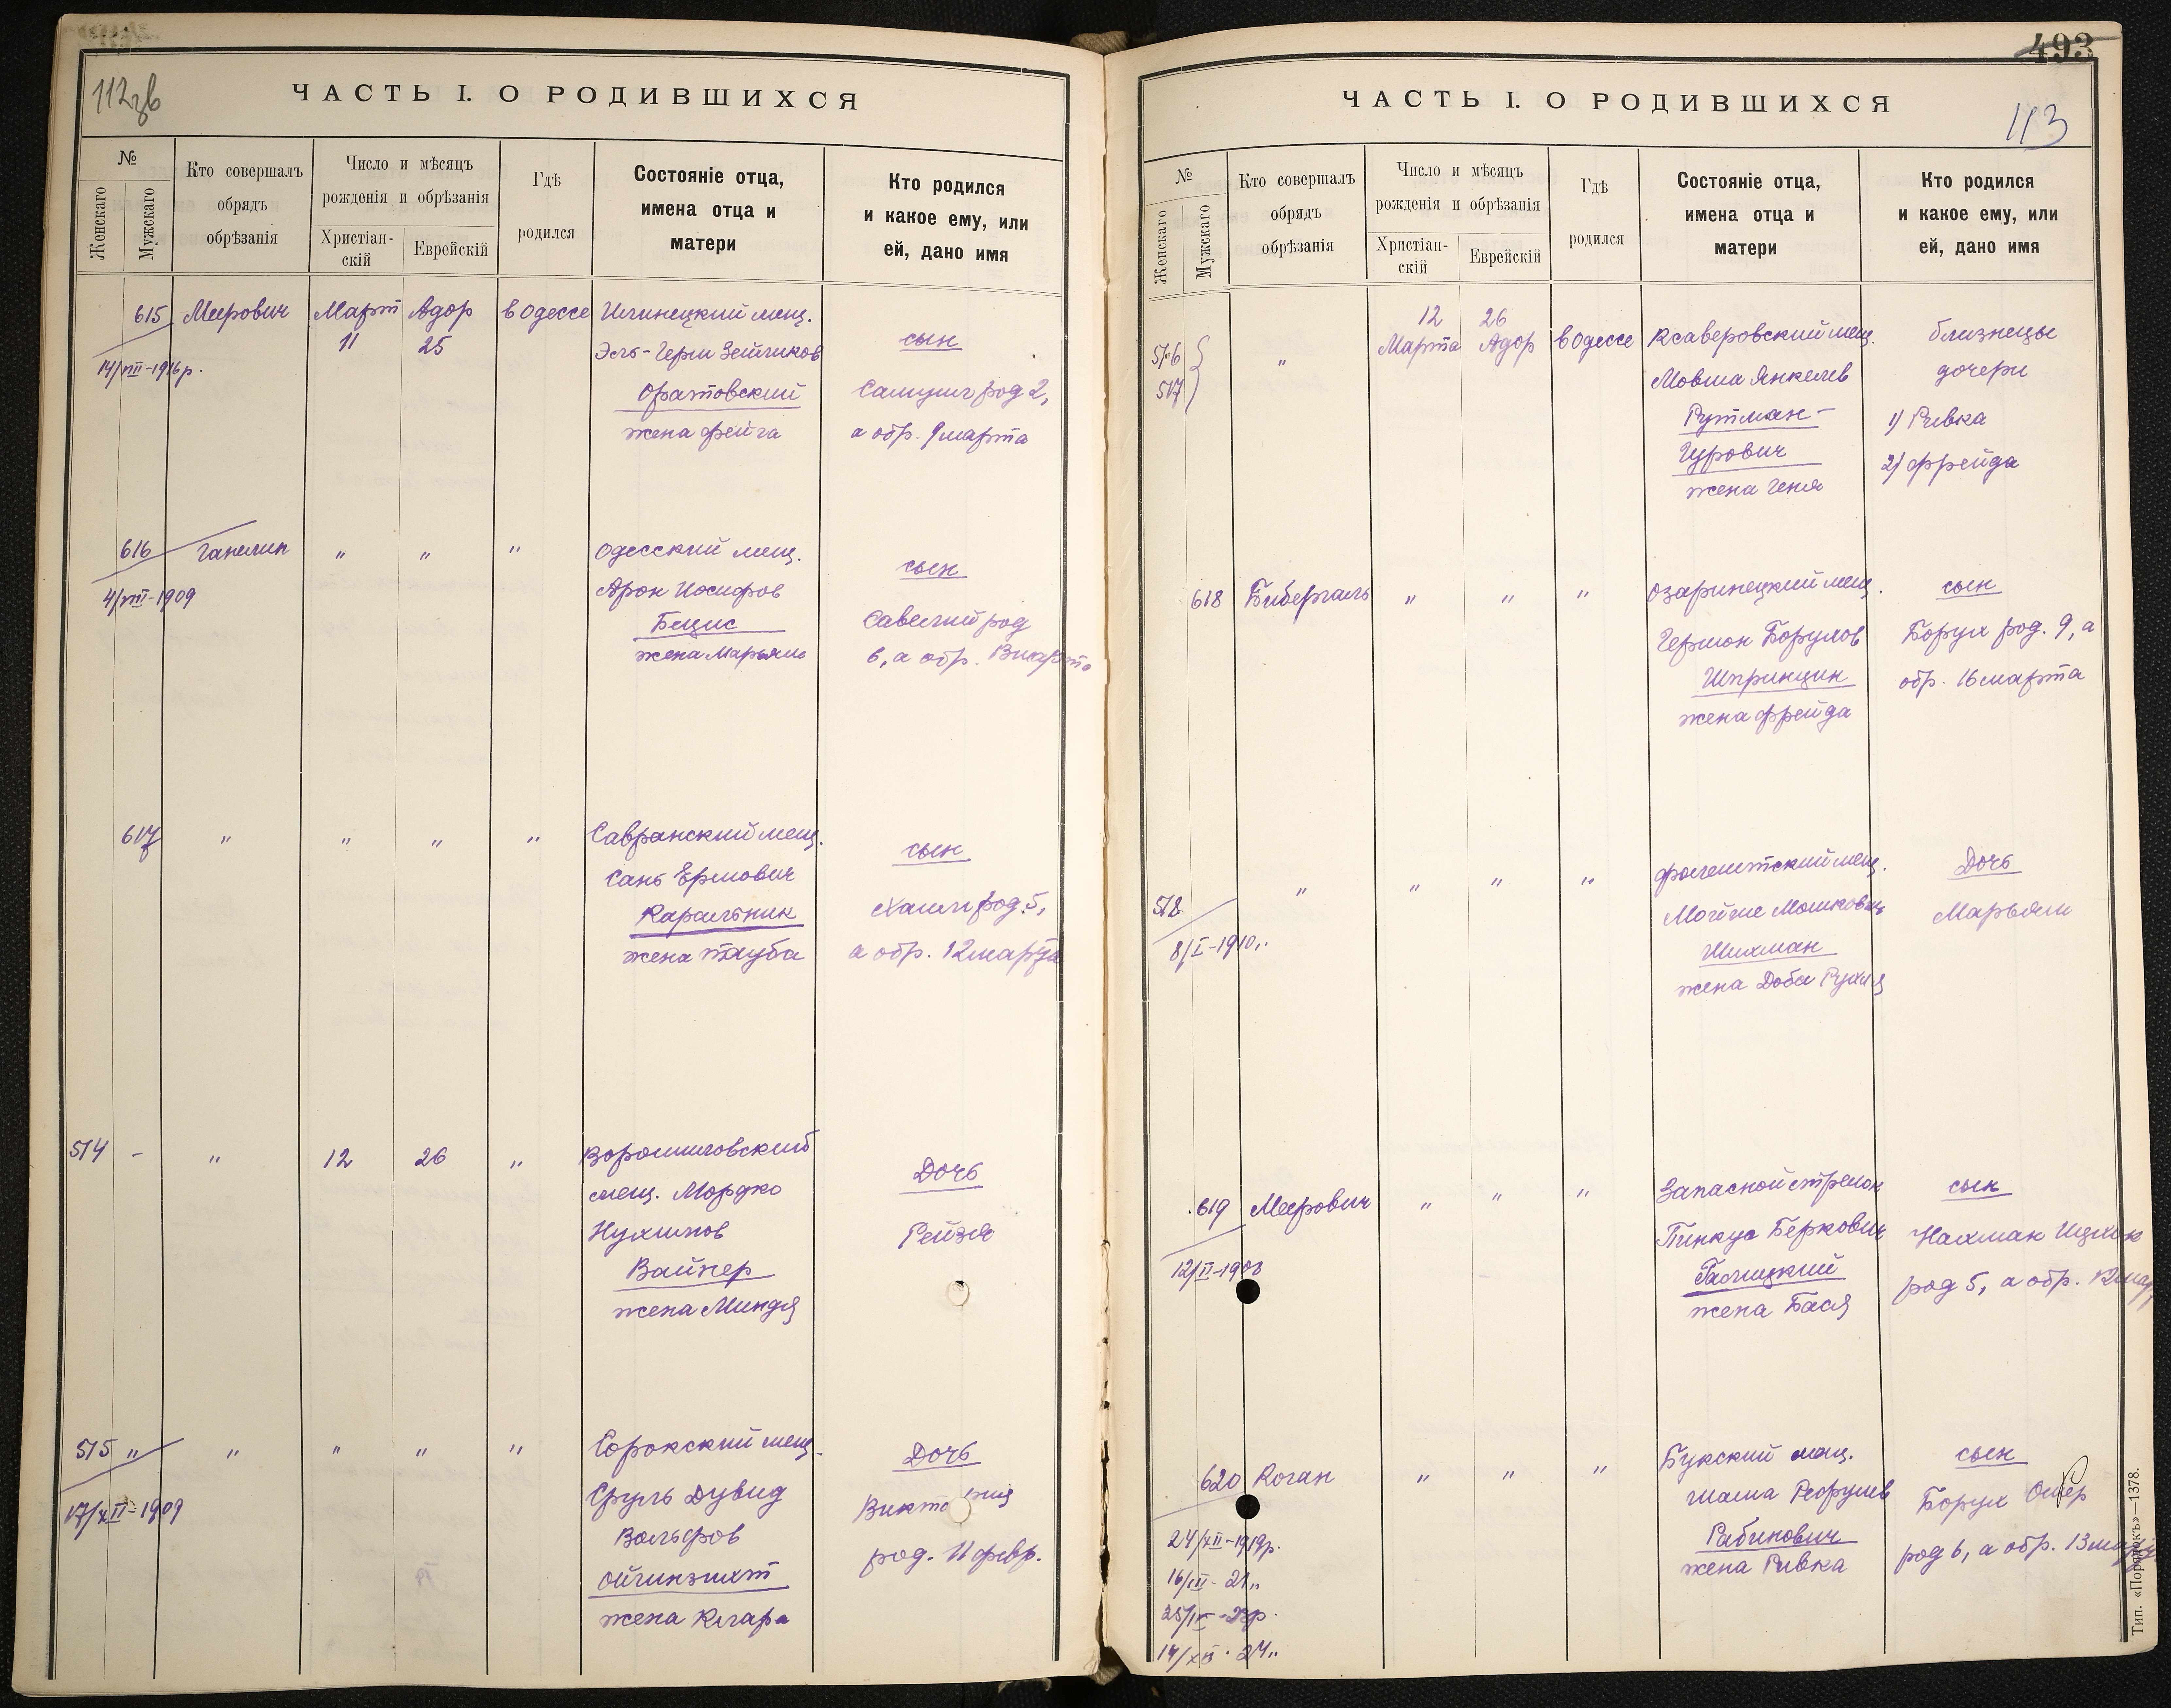 112 зв
ЧАСТЬ I. О РОДИВШИХСЯ
№
Женскаго
Мужскаго
Кто совершалъ
обрядъ
обрѣзанія
Число и мѣсяцъ
рожденія и обрѣзанія
Христіан-
скій
Еврейскій
Гдѣ
родился
Состояніе отца,
имена отца и
матери
Кто родился
и какое ему, или
ей, дано имя
615 Меерович Март Адор в Одессе Илинецкий мещ.
11 25
14/VIII-1916 р.
Эль-Герш Зейликов
Оратовский
жена Фейга
сын
Самуил род 2,
а обр. 9 марта
616 Ганелин " " " Одесский мещ.
4/VIII-1909
Арон Иосифов
Бецис
жена Марьям
сын
Савелий род
6, а обр. 13 марта
617 " " " " Савранский мещ.
Сань Ермович
Каральник
жена Тауба
сын
Хаим род. 5,
а обр. 12 марта
514 - " 12 26 " Ворошиловский
мещ. Мордко
Нухимов
Вайнер
жена Миндя
Дочь
Рейзя
515 " " " " " Сорокский мещ.
17/XII-1909
Сруль Дувид
Вольфов
Ойгинзихт
жена Клара
Дочь
Викто рия
род. 11 февр.
493
113
ЧАСТЬ I. О РОДИВШИХСЯ
№
Женскаго
Мужскаго
Кто совершалъ
обрядъ
обрѣзанія
Число и мѣсяцъ
рожденія и обрѣзанія
Христіан-
скій
Еврейскій
Гдѣ
родился
Состояніе отца,
имена отца и
матери
Кто родился
и какое ему, или
ей, дано имя
12 26
516
517
" Марта Адор в Одессе Ксаверовский мещ.
Мовша Янкелев
Рутман-
Гурович
жена Геня
близнецы
дочери
1) Ривка
2) Фрейда
618 Бибергаль " " " Озаринецкий мещ.
Гершон Борухов
Шпринцин
жена Фрейда
сын
Борух род. 9, а
обр. 16 марта
518 " " " " Фалештский мещ.
8/I-1910 "
Мойше Мошкович
Шихман
жена Доба Рухля
Дочь
Марьям
619 Меерович " " " Запасной стрелок
12/II-1908
Пинкус Беркович
Галицкий
жена Бася
сын
Нахман Ицхок
род 5, а обр. 12 мар
620 Коган " " " Букский мещ.
Рабинович
жена Ривка
сын
Борух Ошер
род 6, а обр. 13 март
24/XII-1919 р.
16/III-21 "
14/XII-24 "
Тип. «Порядокъ»—1378.